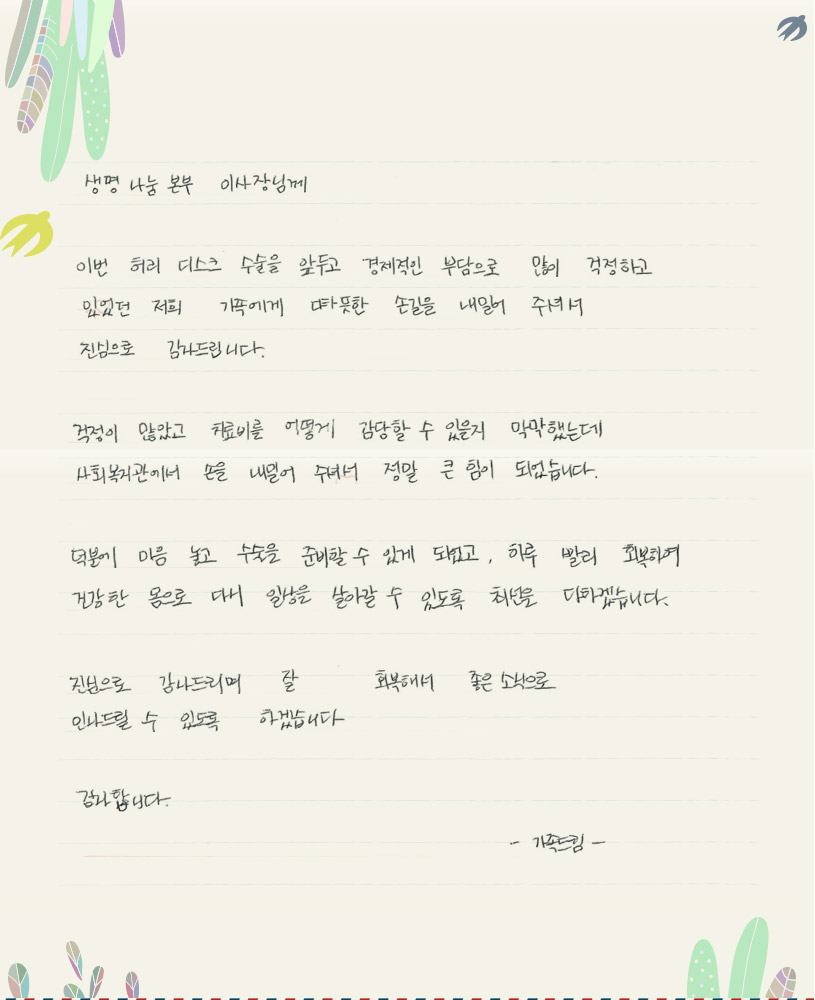 생명 나눔 본부 이사장님께
이번 허리 디스크 수술을 앞두고 경제적인 부담으로 많이 걱정하고
있었던 저희 가족에게 따뜻한 손길을 내밀어 주셔서
진심으로 감사드립니다.
걱정이 많았고 치료비를 어떻게 감당할 수 있을지 막막했는데
사회복지관에서 손을 내밀어 주셔서 정말 큰 힘이 되었습니다.
덕분에 마음 놓고 수술을 준비할 수 있게 되었고, 하루 빨리 회복하여
건강한 몸으로 다시 일상을 살아갈 수 있도록 최선을 다하겠습니다.
진심으로 감사드리며 잘 회복해서 좋은 소식으로
인사드릴 수 있도록 하겠습니다
감사합니다.
- 가족드림 -